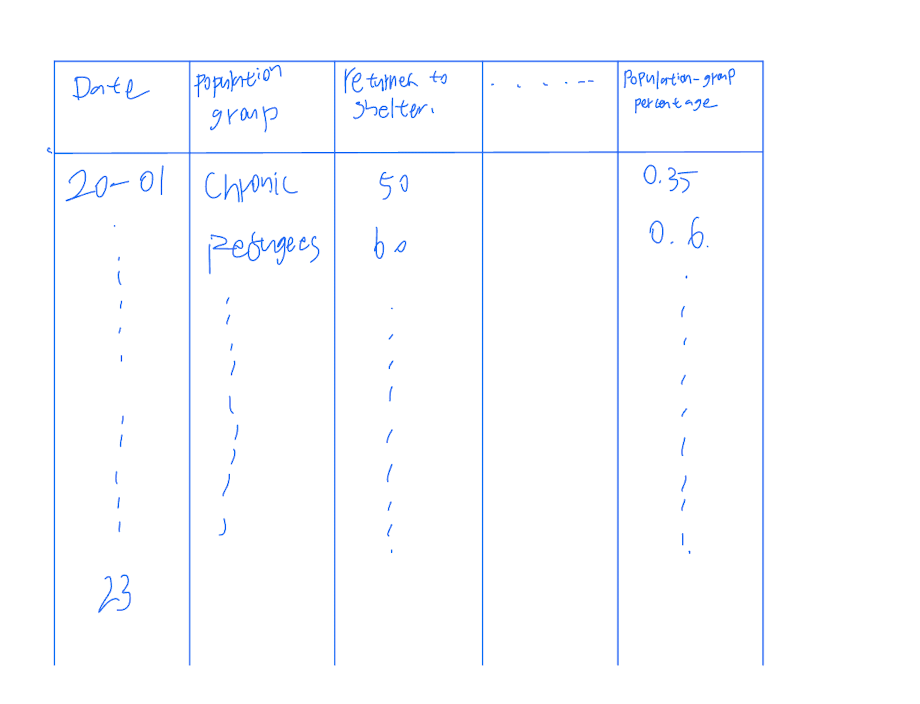 Date
Population
group
returned to
shelter.
. . . . . --
Population-group
percentage
20-01 Chronic 50 0.35
Refugees 60 0.6.
23